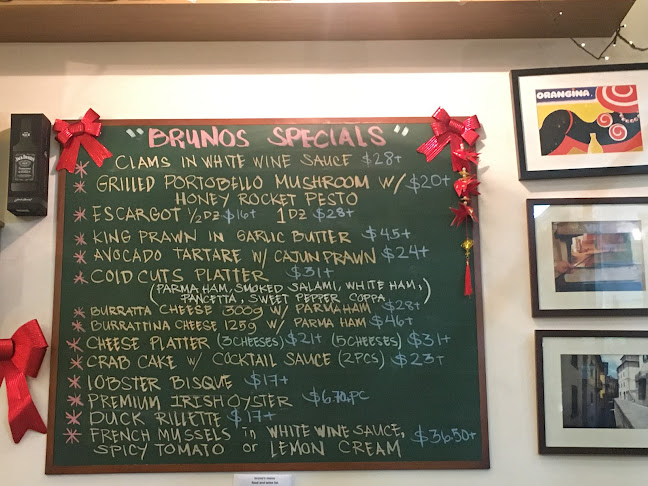 "BRUNOS SPECIALS"
* CLAMS IN WHITE WINE SAUCE $28+
* GRILLED PORTOBELLO MUSHROOM W/ $20+
HONEY ROCKET PESTO
* ESCARGOT 1/2 DZ $16+ 1 DZ $28+
* KING PRAWN IN GARLIC BUTTER $45+
* AVOCADO TARTARE W/ CAJUN PRAWN $24+
* COLD CUTS PLATTER $31+
(PARMA HAM, SMOKED SALAMI, WHITE HAM,
PANCETTA, SWEET PEPPER COPPA)
* BURRATTA CHEESE 300g W/ PARMAHAM $28+
* BURRATTINA CHEESE 125g W/ PARMA HAM $46+
* CHEESE PLATTER (3 CHEESES) $21+ (5 CHEESES) $31+
* CRAB CAKE W/ COCKTAIL SAUCE (2 PCS) $23+
* LOBSTER BISQUE $17+
* PREMIUM IRISH OYSTER $6.70/PC
* DUCK RILLETTE $17+
* FRENCH MUSSELS in WHITE WINE SAUCE, $36.50+
SPICY TOMATO or LEMON CREAM
ORANGINA
Jack Daniel's